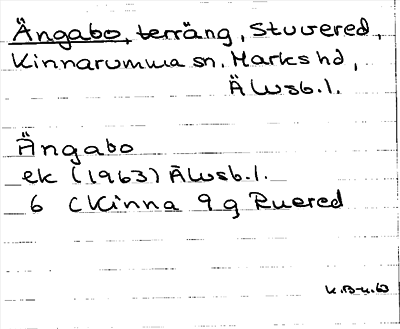 Ängabo, terräng, Stuvered,
Kinnarumma sn. Marks hd,
Älvsb.l.
Ängabo
ek (1963) Älvsb.l.
6 C Kinna 9 g Ruered
K.B-n.63